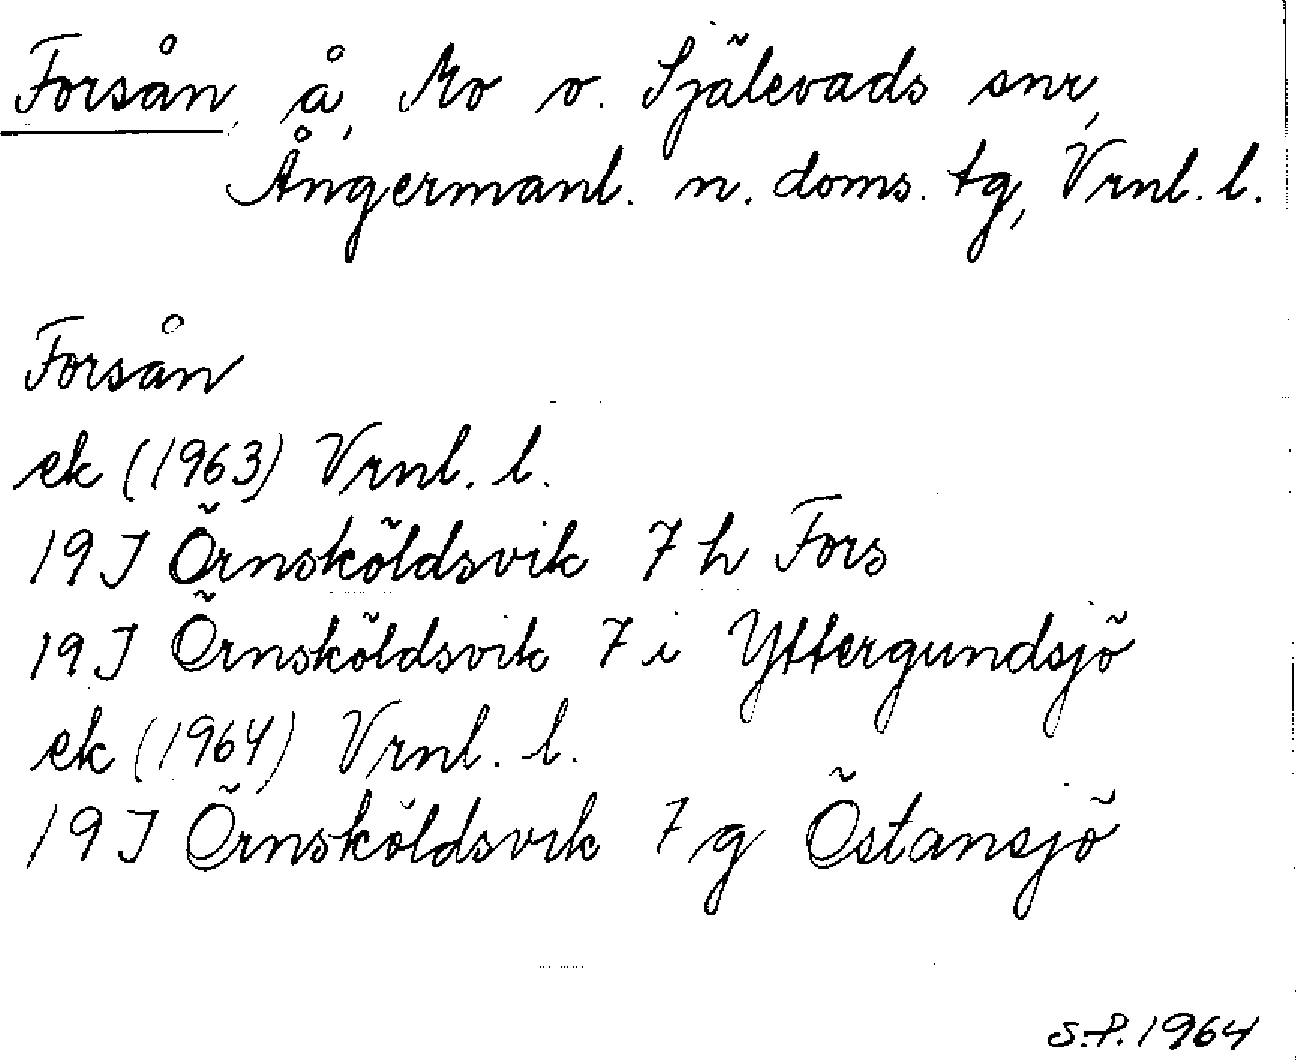 Forsån, å, Mo o. Själevads snr,
Ångermanl. n. doms. tg, Vrnl. l.
Forsån
ek (1963) Vrnl. l.
19 J Örnsköldsvik 7 h Fors
19 J Örnsköldsvik 7 i Yttergundsjö
ek (1964) Vrnl. l.
19 J Örnsköldsvik 7 g Östansjö
S.P. 1964